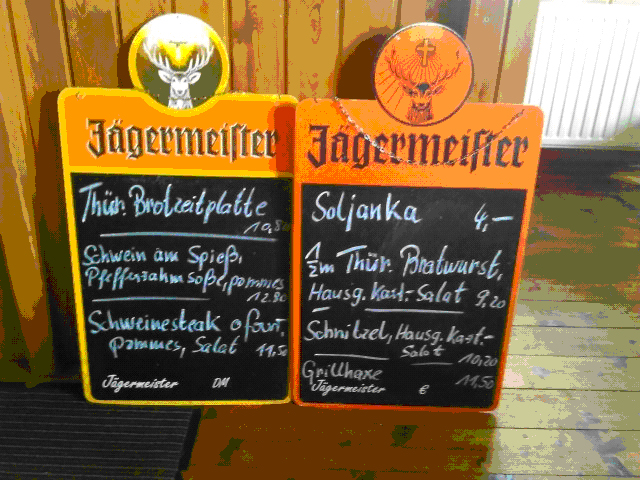 Jägermeister
Thür. Brotzeitplatte
10,50
Schwein am Spieß,
Pfefferrahmsoße, pommes
12.90
Schweinesteak
pommes, Salat 11,50
Jägermeister DM
Jägermeister
Soljanka 4,–
1/2m Thür. Bratwurst,
Hausg. Kart.-Salat 9,20
Schnitzel, Hausg. Kart.-
Salat 10,20
Grillhaxe 11,50
Jägermeister €